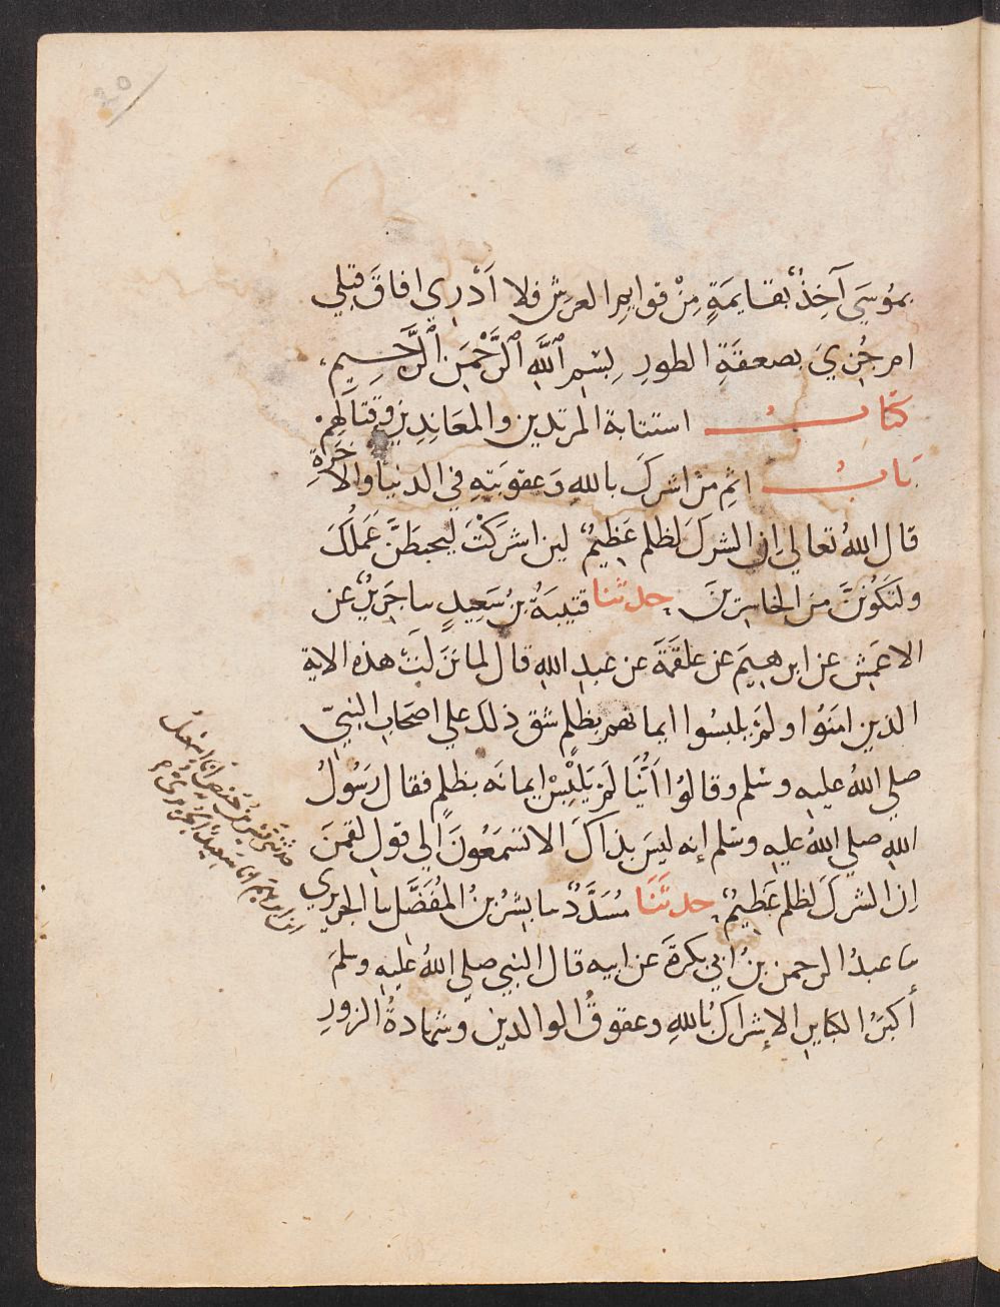 بموُسَي آخِذٌ بقايمَةٍ مِنْ قوايمِ العرش فلا اَدْرِي افاقَ قبلي
ام جُزِيَ بصعقَةِ الطورِ بِسْمِ ٱللَّهِ ٱلرَّحْمَنِ ٱلرَّحِيمِ
كتاب استتابة المرتدين والمعَانِدِين وقتالِهِمْ
بَاب اثمِ من اشركَ بالله وَعقوبَتِهِ في الدنيا والاخرَةِ
قال اللهُ تعالي اِن الشركَ لَظلم عَظِيمٌ لين اشركْتَ ليحبطَنَّ عَملُكَ
ولتَكُونَنَّ من الخاسِرينَ حدثنا قتيبَةُ بنُ سَعِيدٍ نا جَرِيرٌ عن
الاعَمش عن ابرهِيمَ عن علقَمَةَ عن عبد الله قال لما نزَلَت هذه الاية
الذين امنَوُا ولمْ يلبسُوا ايمانهم بظلمٍ شق ذلك علي اصحَابِ النبيّ
صلي اللهُ عليه وسَلم وقالوُا اَيُّنَا لمْ يَلْبِسْ ايمانَه بظلمٍ فقال رَسُولُ
الله صلي اللهُ عليه وسَلم إنه ليسَ بذاكَ الا تسَمعُونَ الي قولِ لقمنَ
اِن الشركَ لظلم عَظِيمٌ حدثنَا مُسَدَّدٌ نا بشرُ بنُ المُفَضَّل نا الجريري
نا عبدُ الرحمن بنُ ابي بكرةَ عن ابيه قال النبي صلي اللهُ عليه وسلمَ
أكبَرُ الكبايرِ الإشراكُ باللهِ وعقوقُ الوالدين وشهادةُ الزورِ
حدثني قيس بن حفص انا اسمعيل
بن ابرهيم انا سعيد الجريري